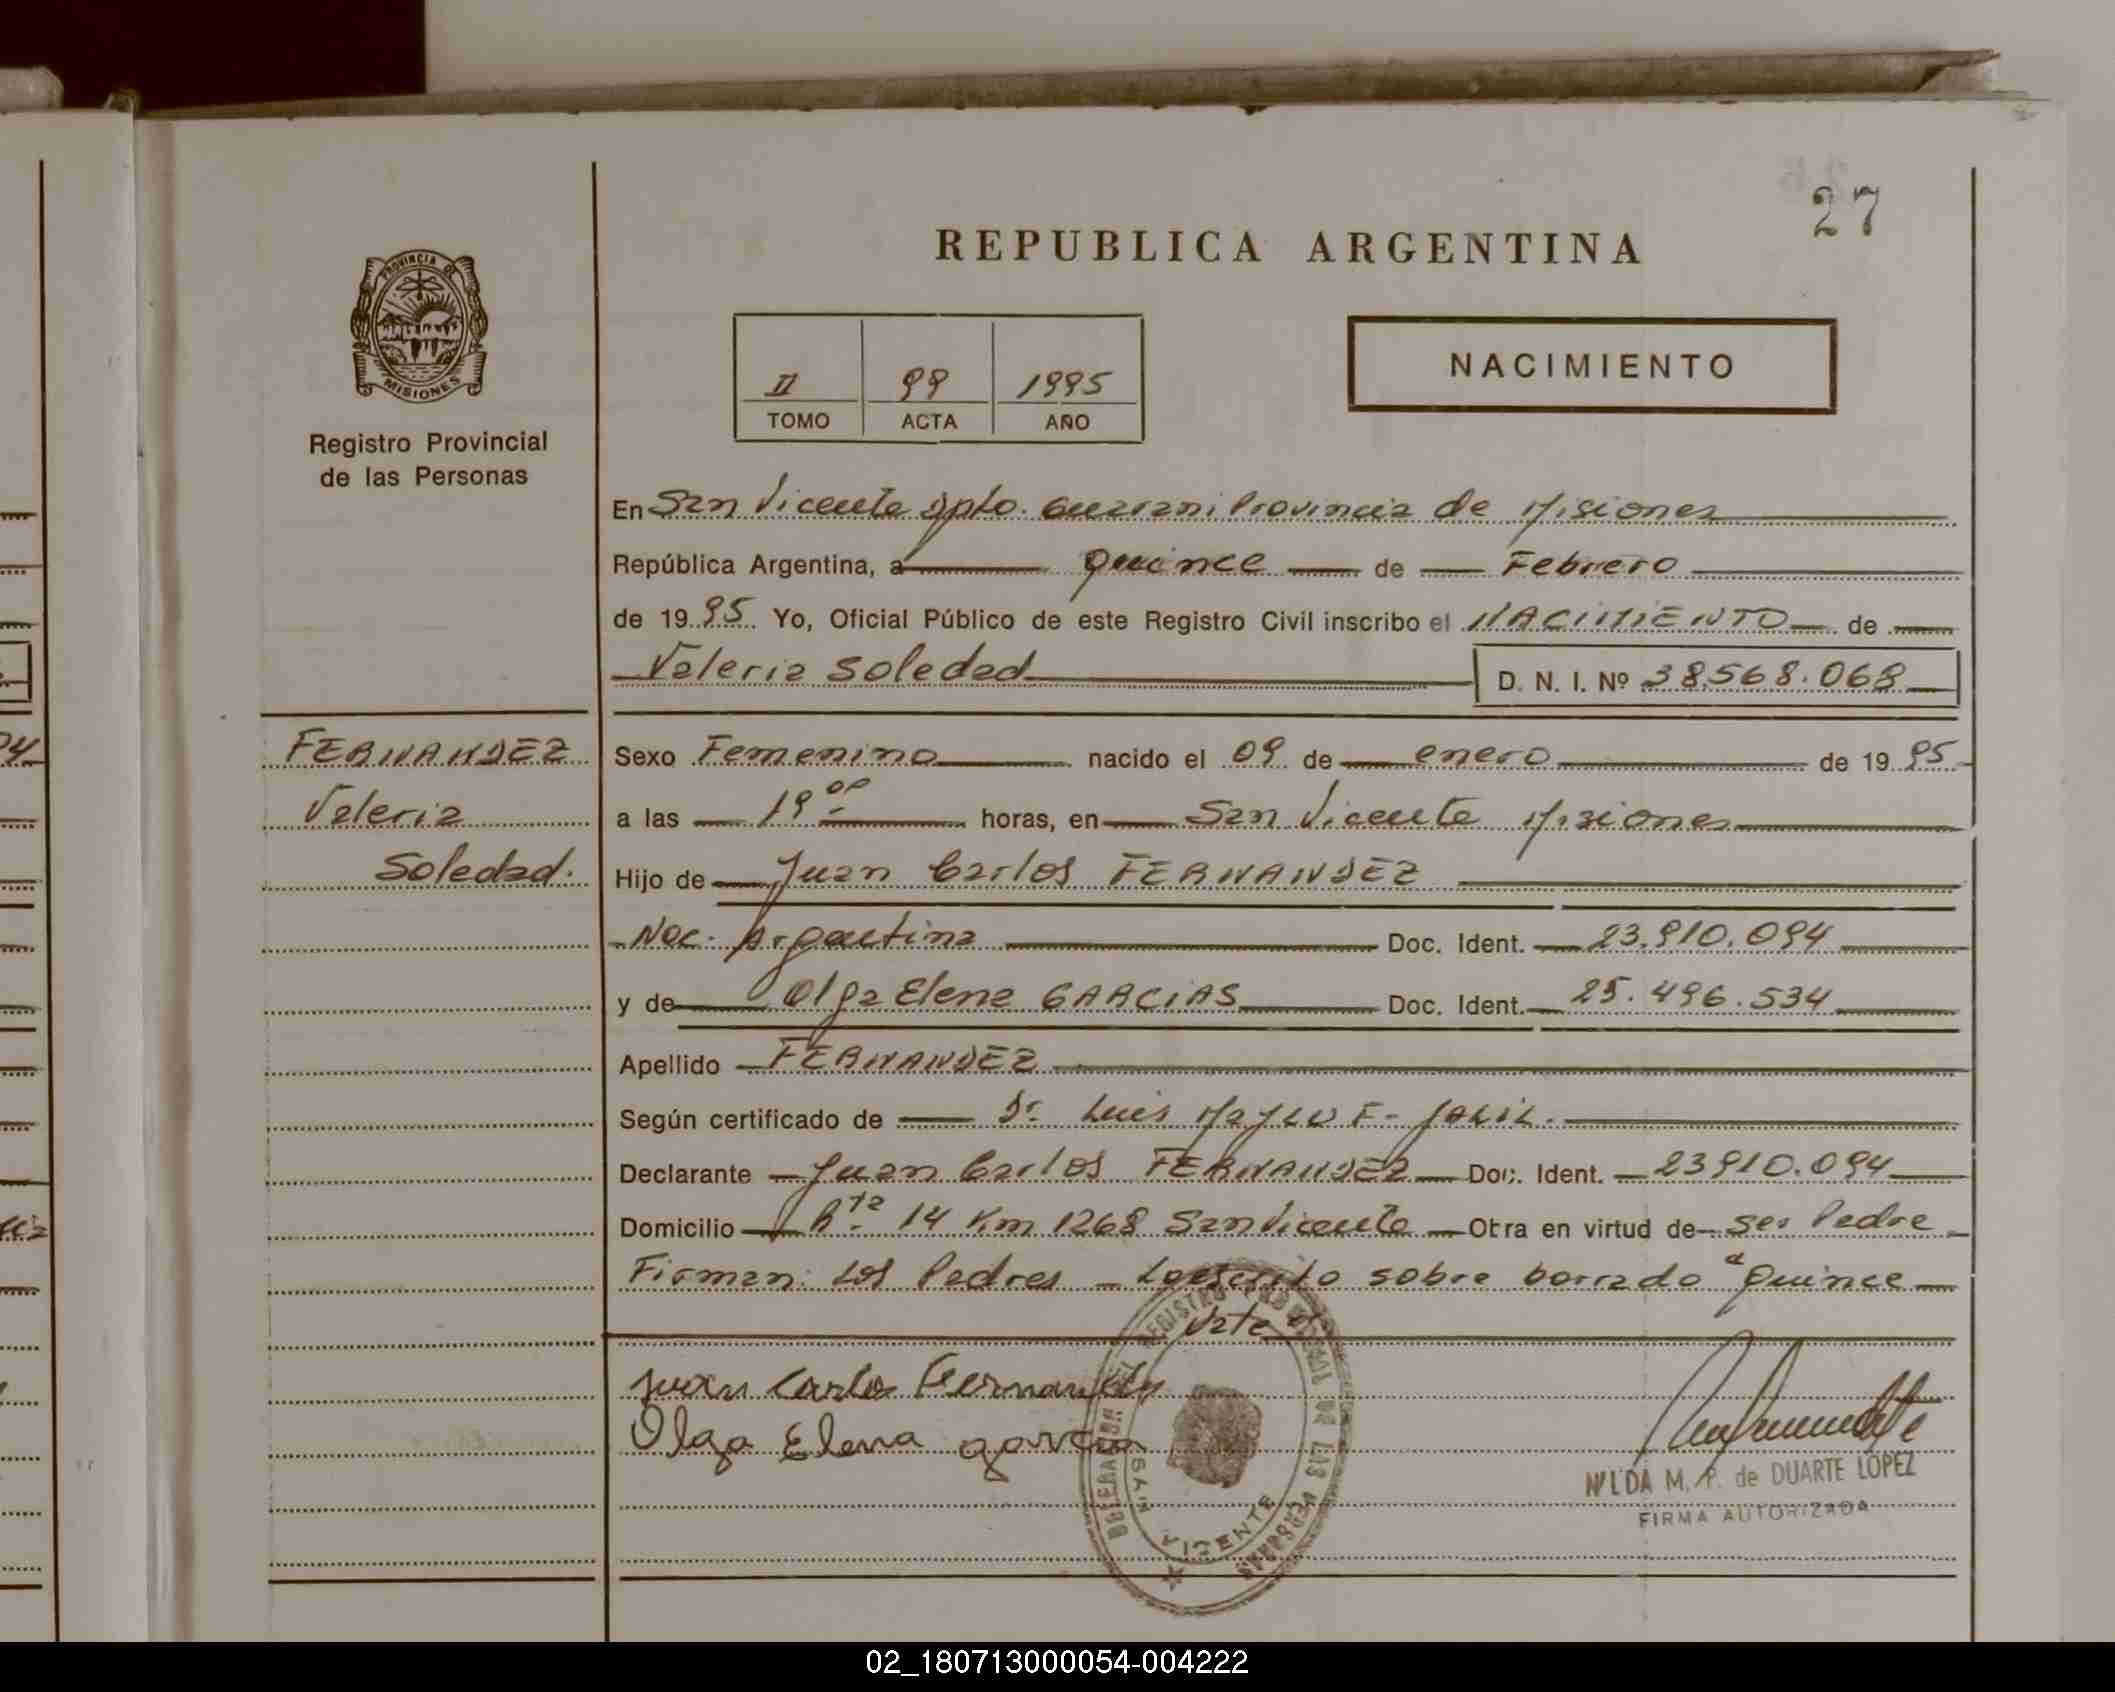 27
REPUBLICA ARGENTINA
PROVINCIA DE
MISIONES
Registro Provincial
de las Personas
II 99 1995
TOMO ACTA AÑO
NACIMIENTO
En San Vicente Dpto. Guarani Provincia de Misiones
República Argentina, a quince de Febrero
de 1995 Yo, Oficial Público de este Registro Civil inscribo el NACIMIENTO de
Valeria Soledad D. N. I. Nº 38.568.068
FERNANDEZ
Valeria
Soledad.
Sexo Femenino nacido el 09 de enero de 1995
a las 19 00 horas, en San Vicente Misiones
Hijo de Juan Carlos FERNANDEZ
Nac. Argentina Doc. Ident. 23.910.094
y de Olga Elena GARCIAS Doc. Ident. 25.496.534
Apellido FERNANDEZ
Según certificado de Dr. Luis F- JALIL.
Declarante Juan Carlos FERNANDEZ Doc. Ident. 23910.094
Domicilio Rta. 14 Km 1268 San Vicente Obra en virtud de ser Padre
Firman: Los Padres - Lo escrito sobre borrado "Quince
Vate
Juan Carlos Fernandez
Olga Elena garcia
REGISTRO PROVINCIAL DE LAS PERSONAS
SAN VICENTE
NILDA M. P. de DUARTE LOPEZ
FIRMA AUTORIZADA
02_180713000054-004222